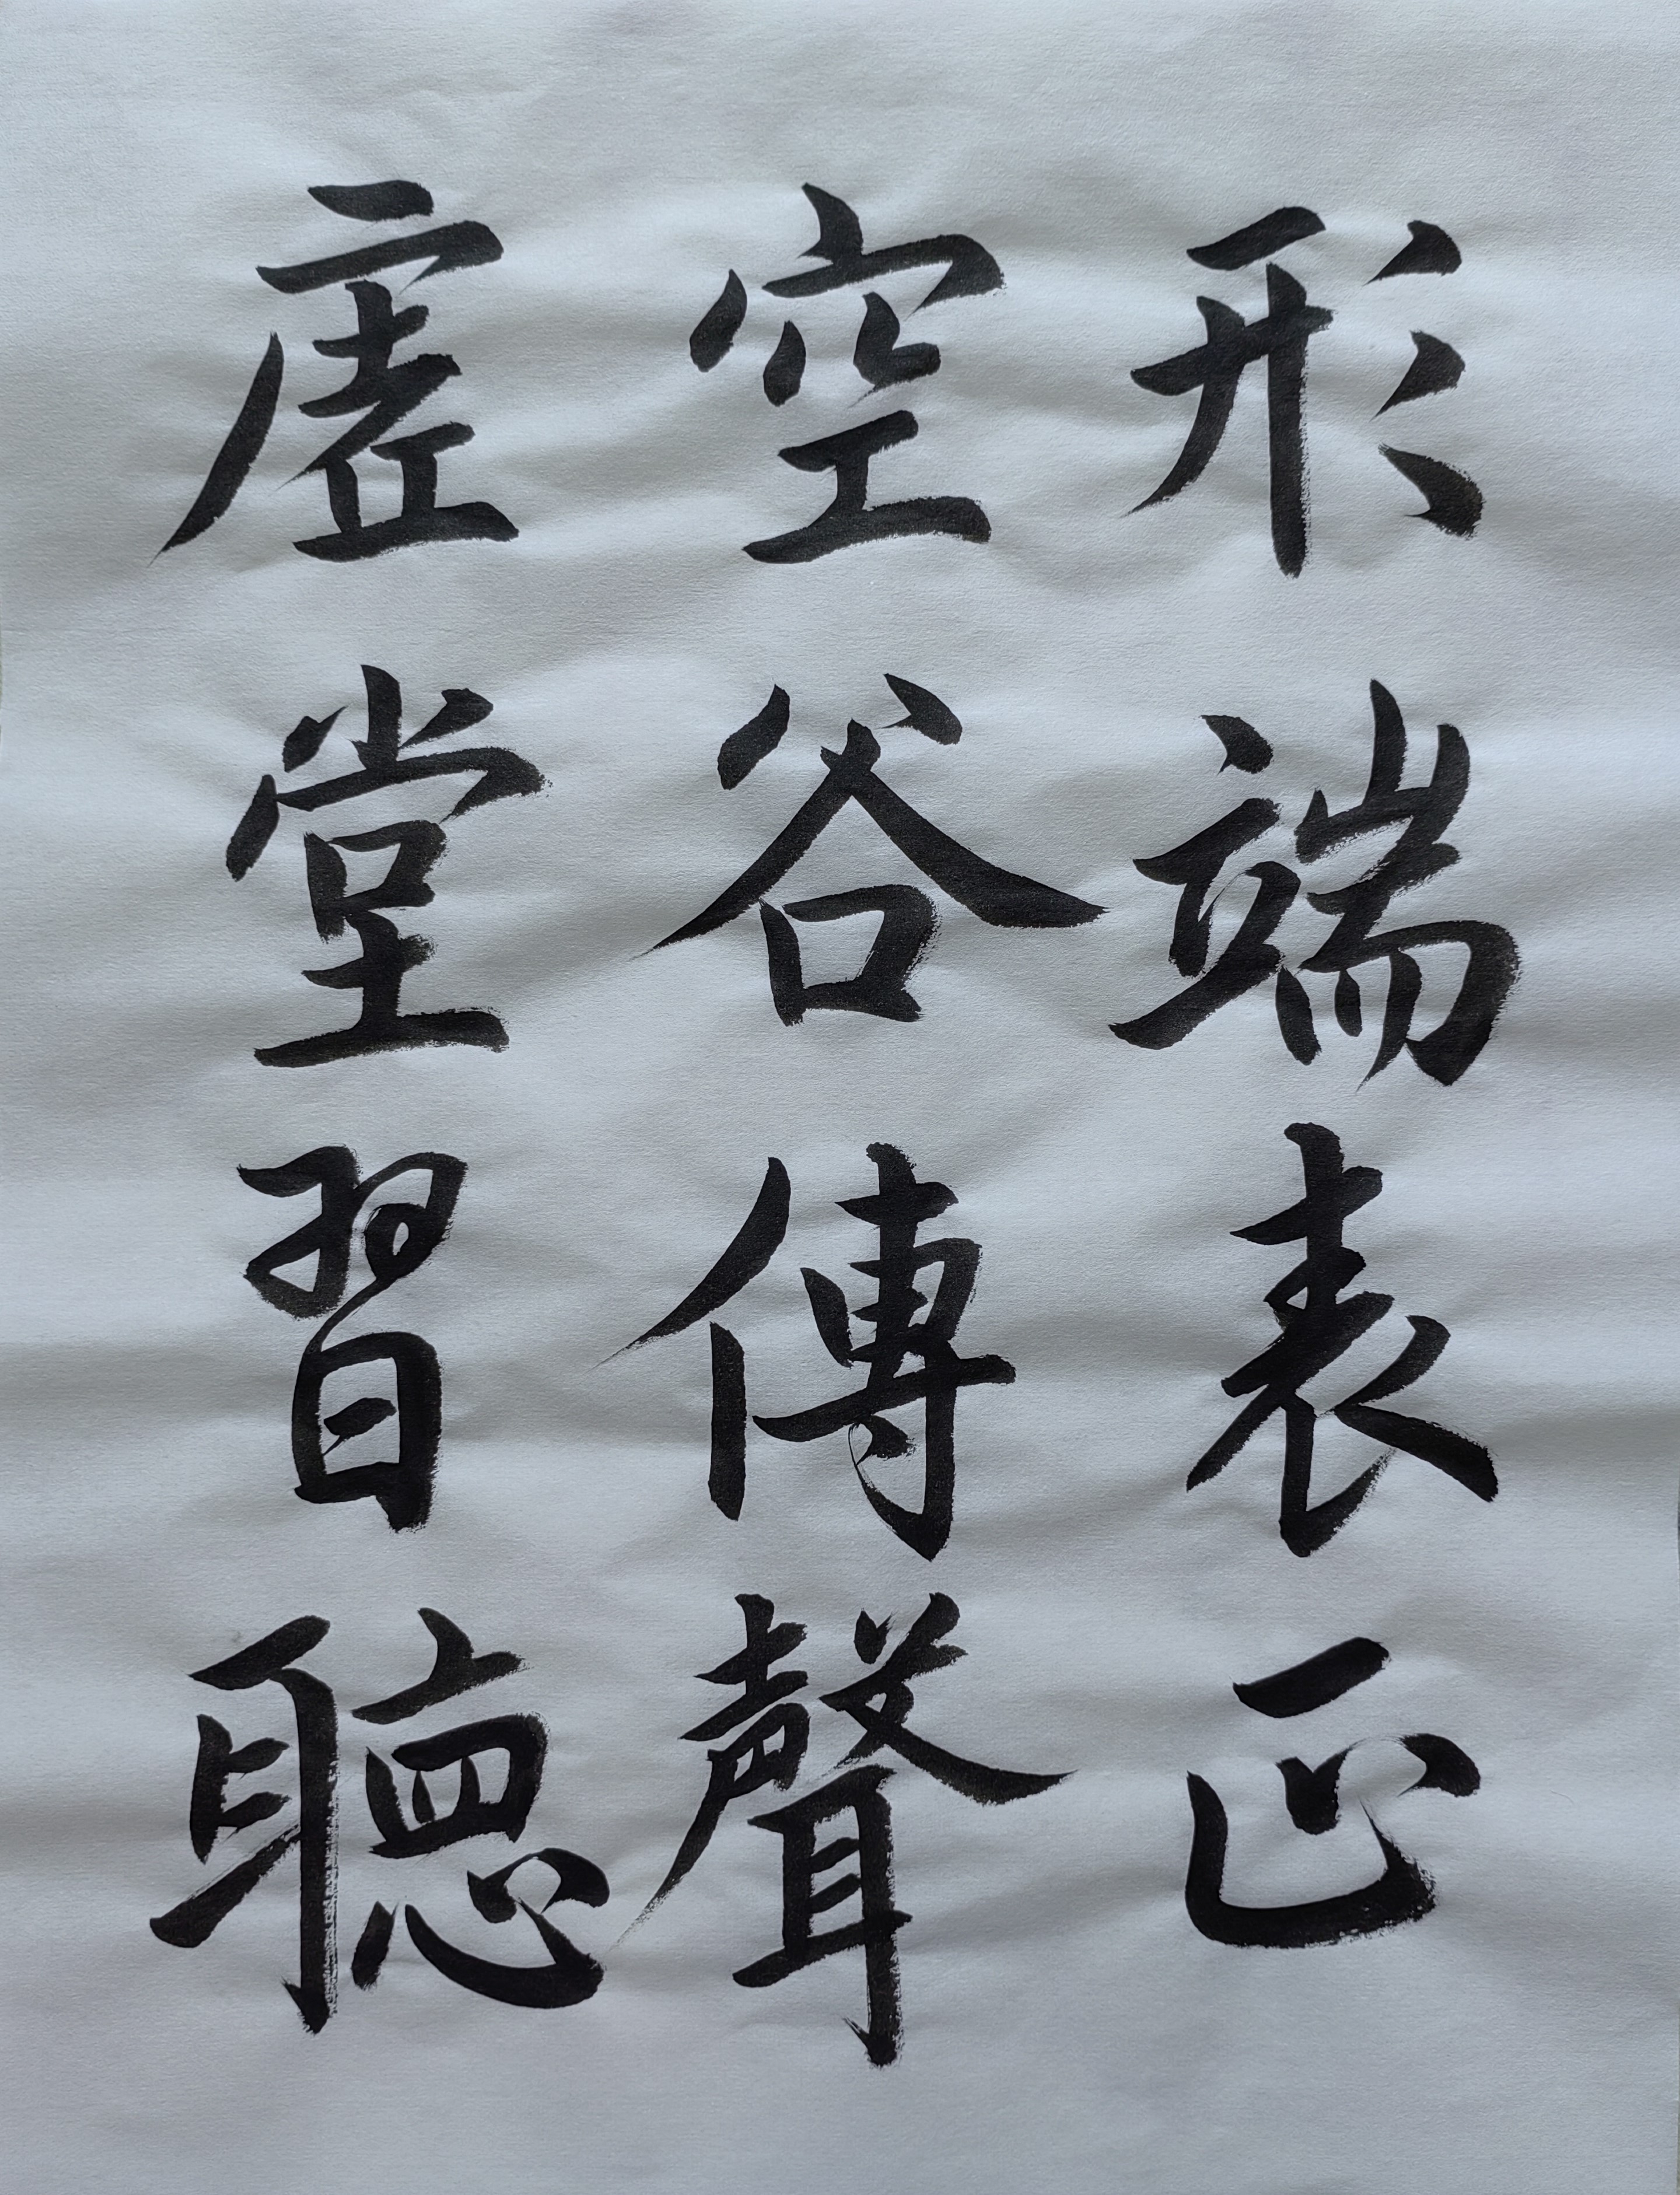 形端表正
空谷傳聲
虛堂習聽